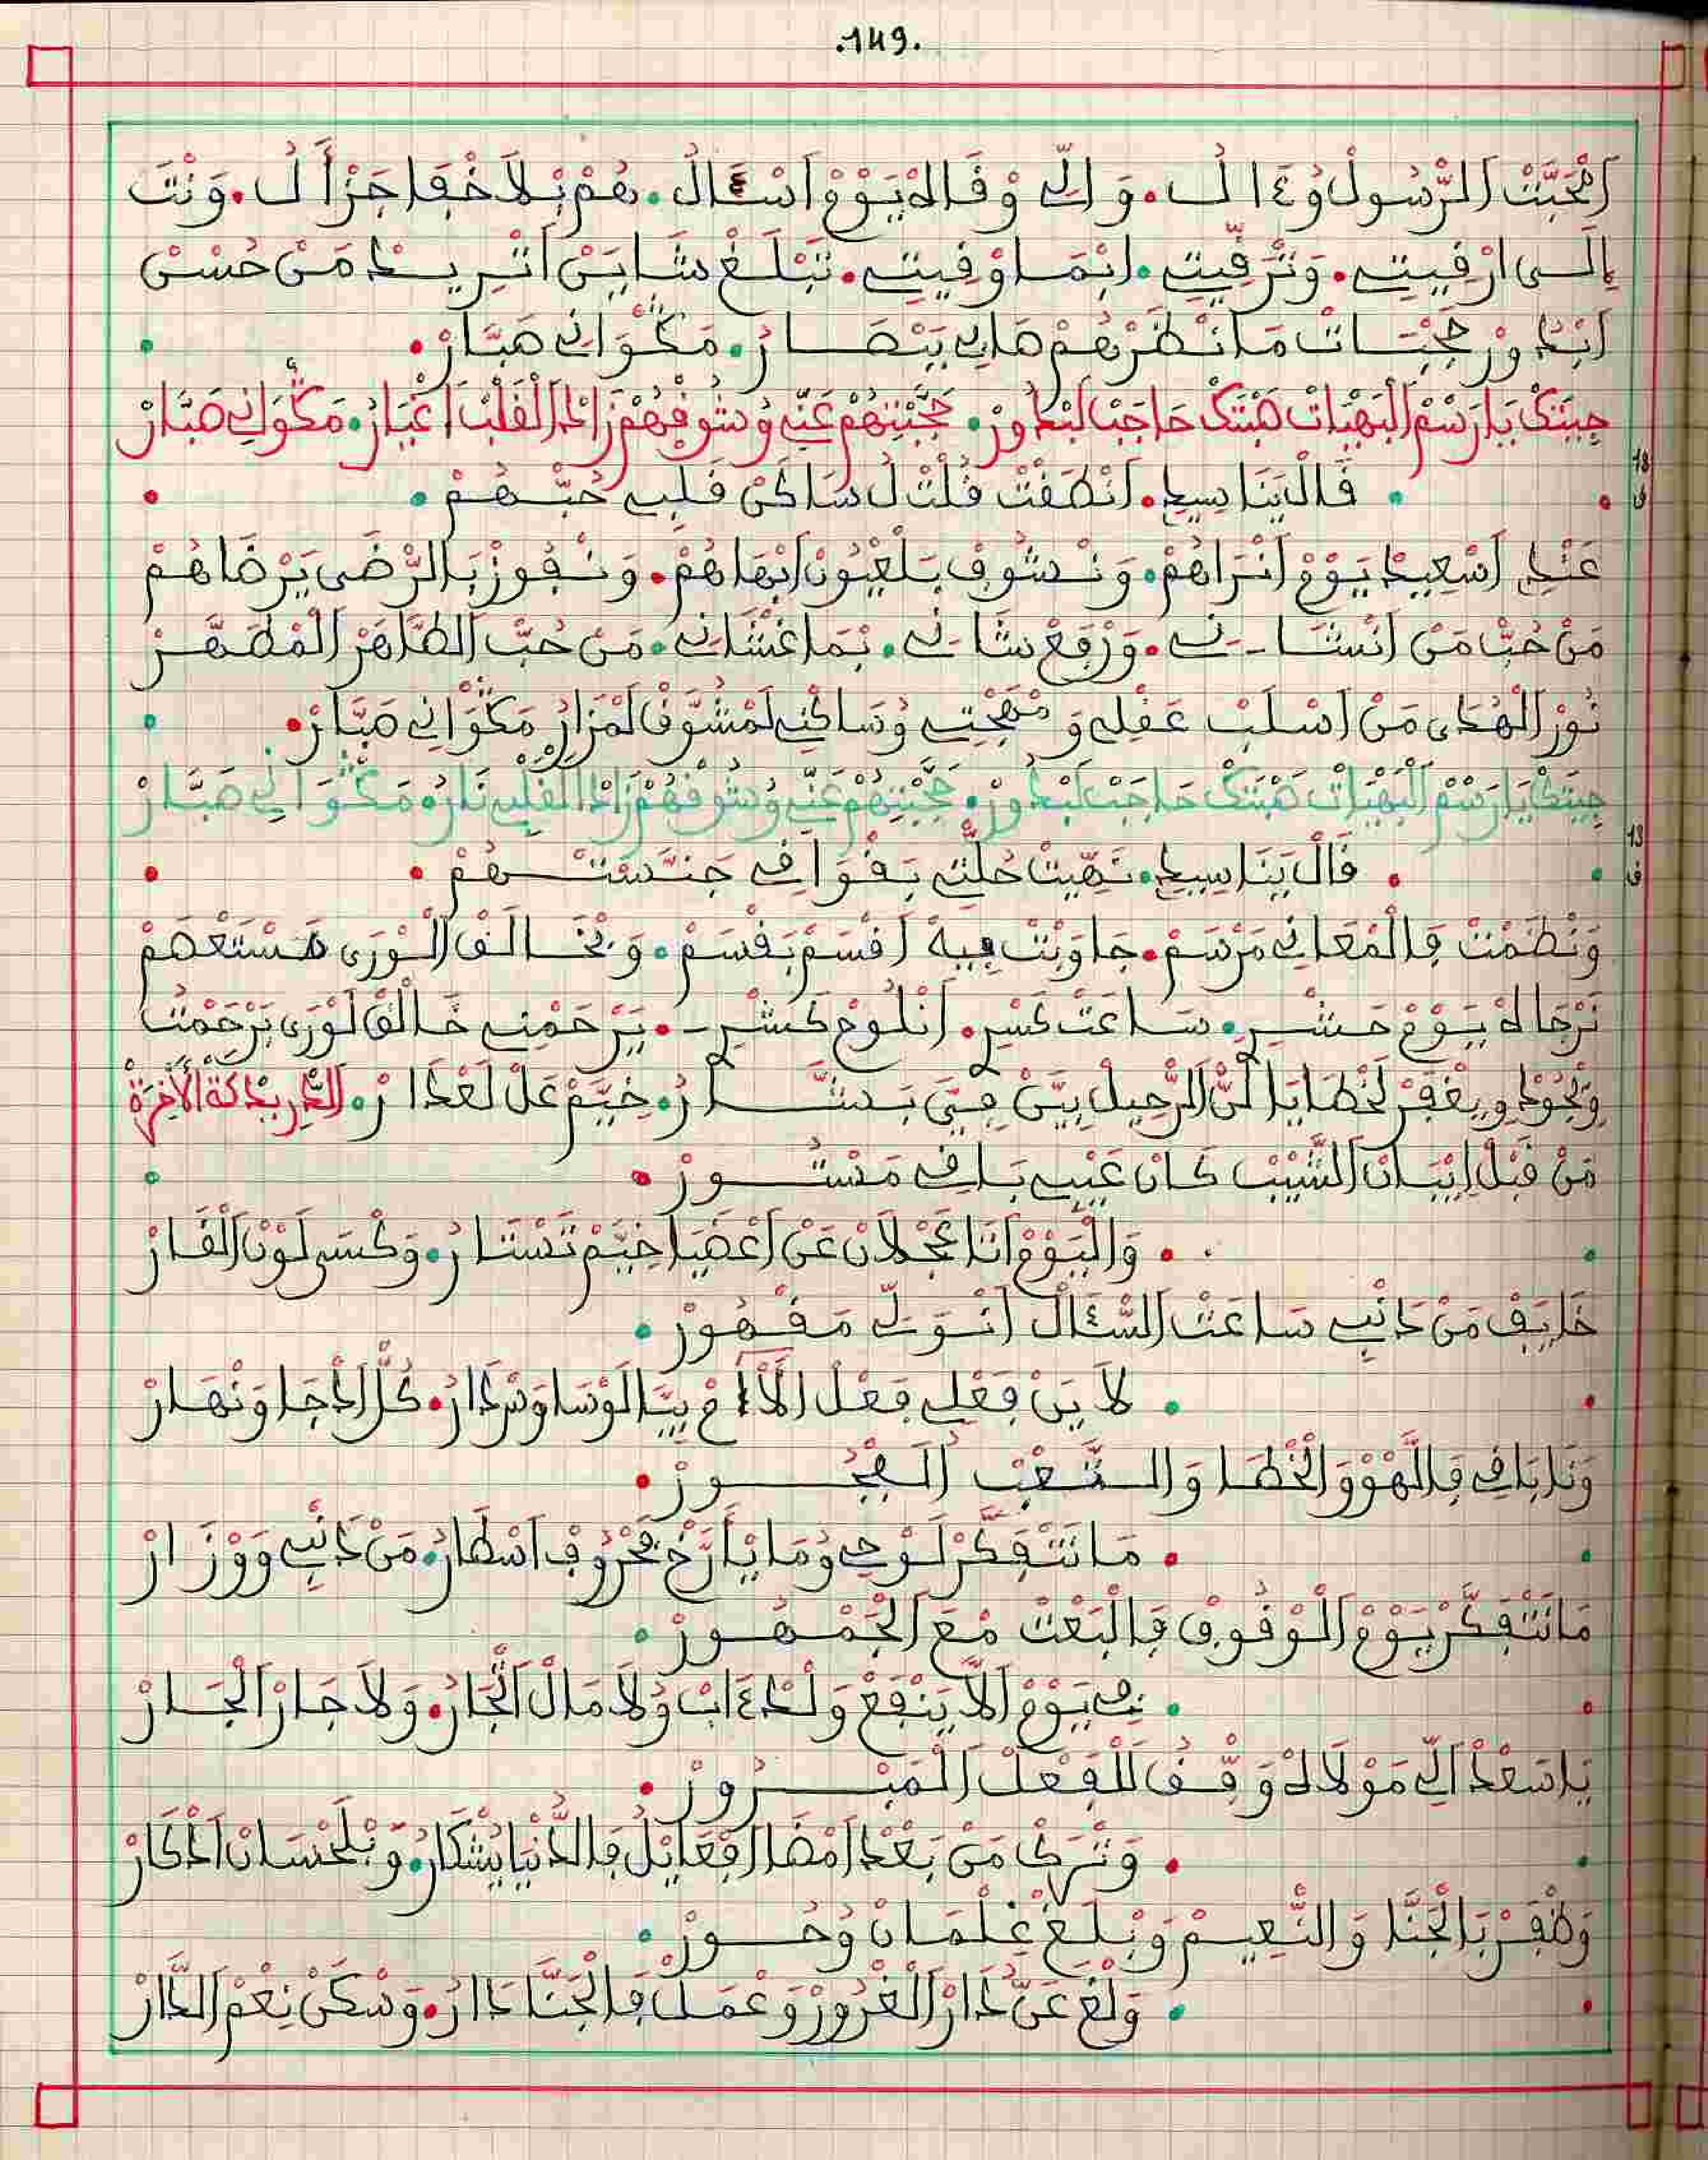 .149.
اَمْحَبَّتْ اَلرَّسُولْ وُءَالُ. وَالِّي وْفَالَهْ يَوْمْ اَسْئَالْ. هُمْ بْلَا خْفَا جَزْاَلُ. وَنْتَ
إِلَى ارْقِيتِ. وَتْرَقِّيتِ. اِبْمَا وْفِيتِ. تَبْلَغْ شَايَنْ اَتْرِيدْ مَنْ حُسْنْ
اَبْدُورْ حَجْبَاتْ مَا نْظَرْهُمْ هَابِي بَبْصَارُ. مَكْوَانِي صَبَّارْ.
جِيتَكْ يَا رَسْمْ اَلْبَهْيَاتْ هَيْتَكْ حَاجَبْ لَبْدُورْ. حَجَّبْتِهُمْ عَنِّي وُشَوْفْهُمْ زَادْ اَلْقَلْبْ اَغْيَارُ. مَكْوَانِي صَبَّارْ
18 ف
قَالْ يَنَا سِيدِ. اَنْطَقْتْ قُلْتْ لُ سَاكَنْ قَلْبِي حُبْهُمْ.
عَنْدِ اَسْعِيدْ يَوْمْ اَنْرَاهُمْ. وَنْشُوفْ بَلْعْيُونْ اَبْهَاهُمْ. وَنْفُوزْ بَالرّْضَى يَرْضَاهُمْ
مَنْ حُبّْ مَنْ اَنْشَانِي. وَرْفَعْ شَانِي. بْمَا غْشَانِي. مَنْ حُبّْ اَلطَّاهَرْ اَلْمْطَهَّرْ
نُورْ اَلْهُدَى مَنْ اَسْلَبْ عَقْلِي وَمْهَجْتِي وُسَاكْنِي لَمْشَوَّقْ لَمْزَارُ مَكْوَانِي صَبَّارْ.
جِيتَكْ يَا رَسْمْ اَلْبَهْيَاتْ هَيْتَكْ حَاجَبْ لَبْدُورْ. حَجَّبْتِهُمْ عَنِّي وُشَوْفْهُمْ زَادْ اَلْقَلْبِي نَارُ. مَكْوَانِي صَبَّارْ
13 ف
قَالْ يَنَا سِيدِ. نَهِّيتْ حُلّْتِي بَقْوَافِي جَنْسْهُمْ.
وَنْظَمْتْ فَالْمْعَانِي مَرْسَمْ. جَاوَبْتْ فِيهْ اَقْسَمْ بَقْسَمْ. وَنْخَالَقْ اَلْوَرَى مَسْتَعْصَمْ
نَرْجَاهْ يَوْمْ حَشْرِ. سَاعَتْ كَسْرِ. اَنْلُوحْ كَشْرِ. يَرْحَمْنِي خَالَقْ لَوْرَى بَرْحَمْتُ
وَيْجُودْ وِيغْفَرْ لَخْطَايَا لَنّْ اَلرّْحِيلْ بَيَّنْ فِيَّ بَشَّارُ. خِيَّمْ عَلْ لَعْدَارْ. اَلدّْرِيدْكَةْ اَلْأَخِرَةْ
مَنْ قَبْلْ اِتْيَانْ اَلشَّيْبْ كَانْ عَيْبِي بَاقِي مَسْتُورْ.
وَالْيَوْمْ اَنَا عَجْلَانْ عَنْ اَعْضَيَا خِيَّمْ تَسْتَارُ. وَكْسَى لَوْنْ اَلْقَارْ
خَايَفْ مَنْ دَانْبِي سَاعَتْ اَلسّْئَالْ اَنْوَلِّي مَقْهُورْ.
لَا يَنْ فَعْلِي فَعْلْ اَلْئَامْ بِيَّ لَوْسَاوَسْ دَارُ. كُلّْ اَدْجَا وَنْهَارْ
وَنَا بَاقِي فَاللّْهَوْ وَالْخْطَا وَالتّْعَبْ اَلْفْجُورْ.
مَا نَتْفَكَّرْ لَوْحِي وُمَا يَأَرَّخْ فَحْرُوفْ اَسْطَارُ. مَنْ دَانْبِي وَوْزَارْ
مَا نَتْفَكَّرْ يَوْمْ اَلْوْقُوفْ فَالْبَعْتْ مْعَ اَلْجَمْهُورْ.
فِي يَوْمْ اَلَّا يَنْفَعْ وَلْدْ ءَابْ وُلَا مَالْ اَتّْجَارُ. وَلَا جَارْ اَلْجَارْ
يَا سَعْدْ اَلِّي مَوْلَاهْ وَفّْقُ لَلْفَعْلْ اَلْمَبْرُورْ.
وَتْرَكْ مَنْ بَعْدْ اَمْضَا اَفْعَايْلُ فَالدَّنْيَا يَشْكَارُ. وَبْلَحْسَانْ اَدْكَارْ
وَظْفَرْ بَالْجَنَّا وَالنّْعِيمْ وَبْلَغْ غَلْمَانْ وُحُورْ.
وَلْغَى عَنّْ دَارْ اَلْغْرُورْ وَعْمَلْ فَالْجَنَّا دَارُ. وَسْكَنْ نِعْمْ اَلدَّارْ